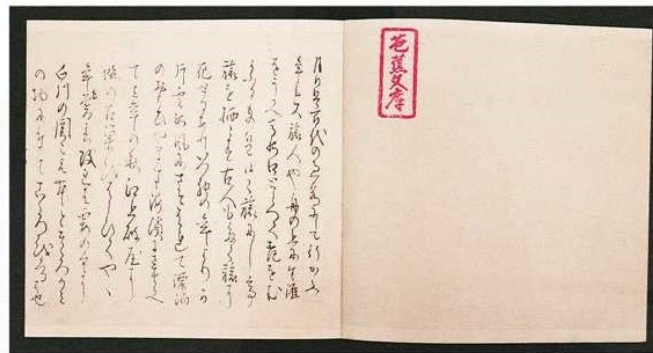 芭蕉文庫
月日は百代の過客にして行かふ
年も又旅人也舟の上に生涯
をうかへ馬の口とらへて老をむ
かふるものは日々旅にして
旅を栖とす古人も多く旅に
死せるありいつれの年よりか
片雲の風にさそはれて漂泊
のおもひやます海濱にさすらへ
て去年の秋江上破屋に
蜘の古巣をはらひてやゝ
年も暮春改れは霞の空に
白川の関こえんとそゝろかみ
の物につきてこゝろをくるはせ